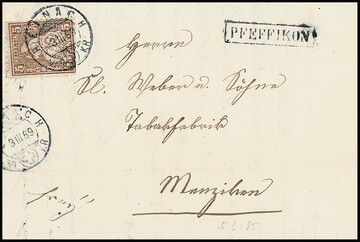 REINACH
PFEFFIKON
5 5
Herren
Sl. Weber u. Söhne
Tabakfabrik
Menziken
NACH
9 III 69